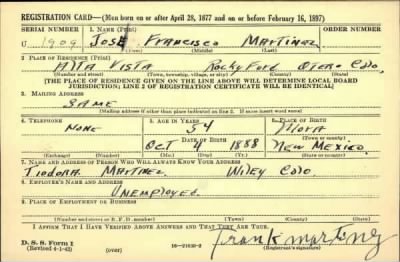 REGISTRATION CARD—(Men born on or after April 28, 1877 and on or before February 16, 1897)
SERIAL NUMBER 1. NAME (Print) ORDER NUMBER
U 1909 JOSE Francisco Martinez
(First) (Middle) (Last)
2. PLACE OF RESIDENCE (Print)
Alta Vista Rocky Ford Otero Colo.
(Number and street) (Town, township, village, or city) (County) (State)
[THE PLACE OF RESIDENCE GIVEN ON THE LINE ABOVE WILL DETERMINE LOCAL BOARD
JURISDICTION; LINE 2 OF REGISTRATION CERTIFICATE WILL BE IDENTICAL]
3. MAILING ADDRESS
SAME
(Mailing address if other than place indicated on line 2. If same insert word same)
4. TELEPHONE 5. AGE IN YEARS 6. PLACE OF BIRTH
None 54 Mora
DATE OF BIRTH (Town or county)
Oct 4 1888 New Mexico
(Exchange) (Number) (Mo.) (Day) (Yr.) (State or country)
7. NAME AND ADDRESS OF PERSON WHO WILL ALWAYS KNOW YOUR ADDRESS
Tiodora Martinez Wiley Colo
8. EMPLOYER'S NAME AND ADDRESS
Unemployed
9. PLACE OF EMPLOYMENT OR BUSINESS
(Number and street or R. F. D. number) (Town) (County) (State)
I AFFIRM THAT I HAVE VERIFIED ABOVE ANSWERS AND THAT THEY ARE TRUE.
D. S. S. Form 1
(Revised 4-1-42) (over) 16—21630-2 Frank Martinez
(Registrant's signature)